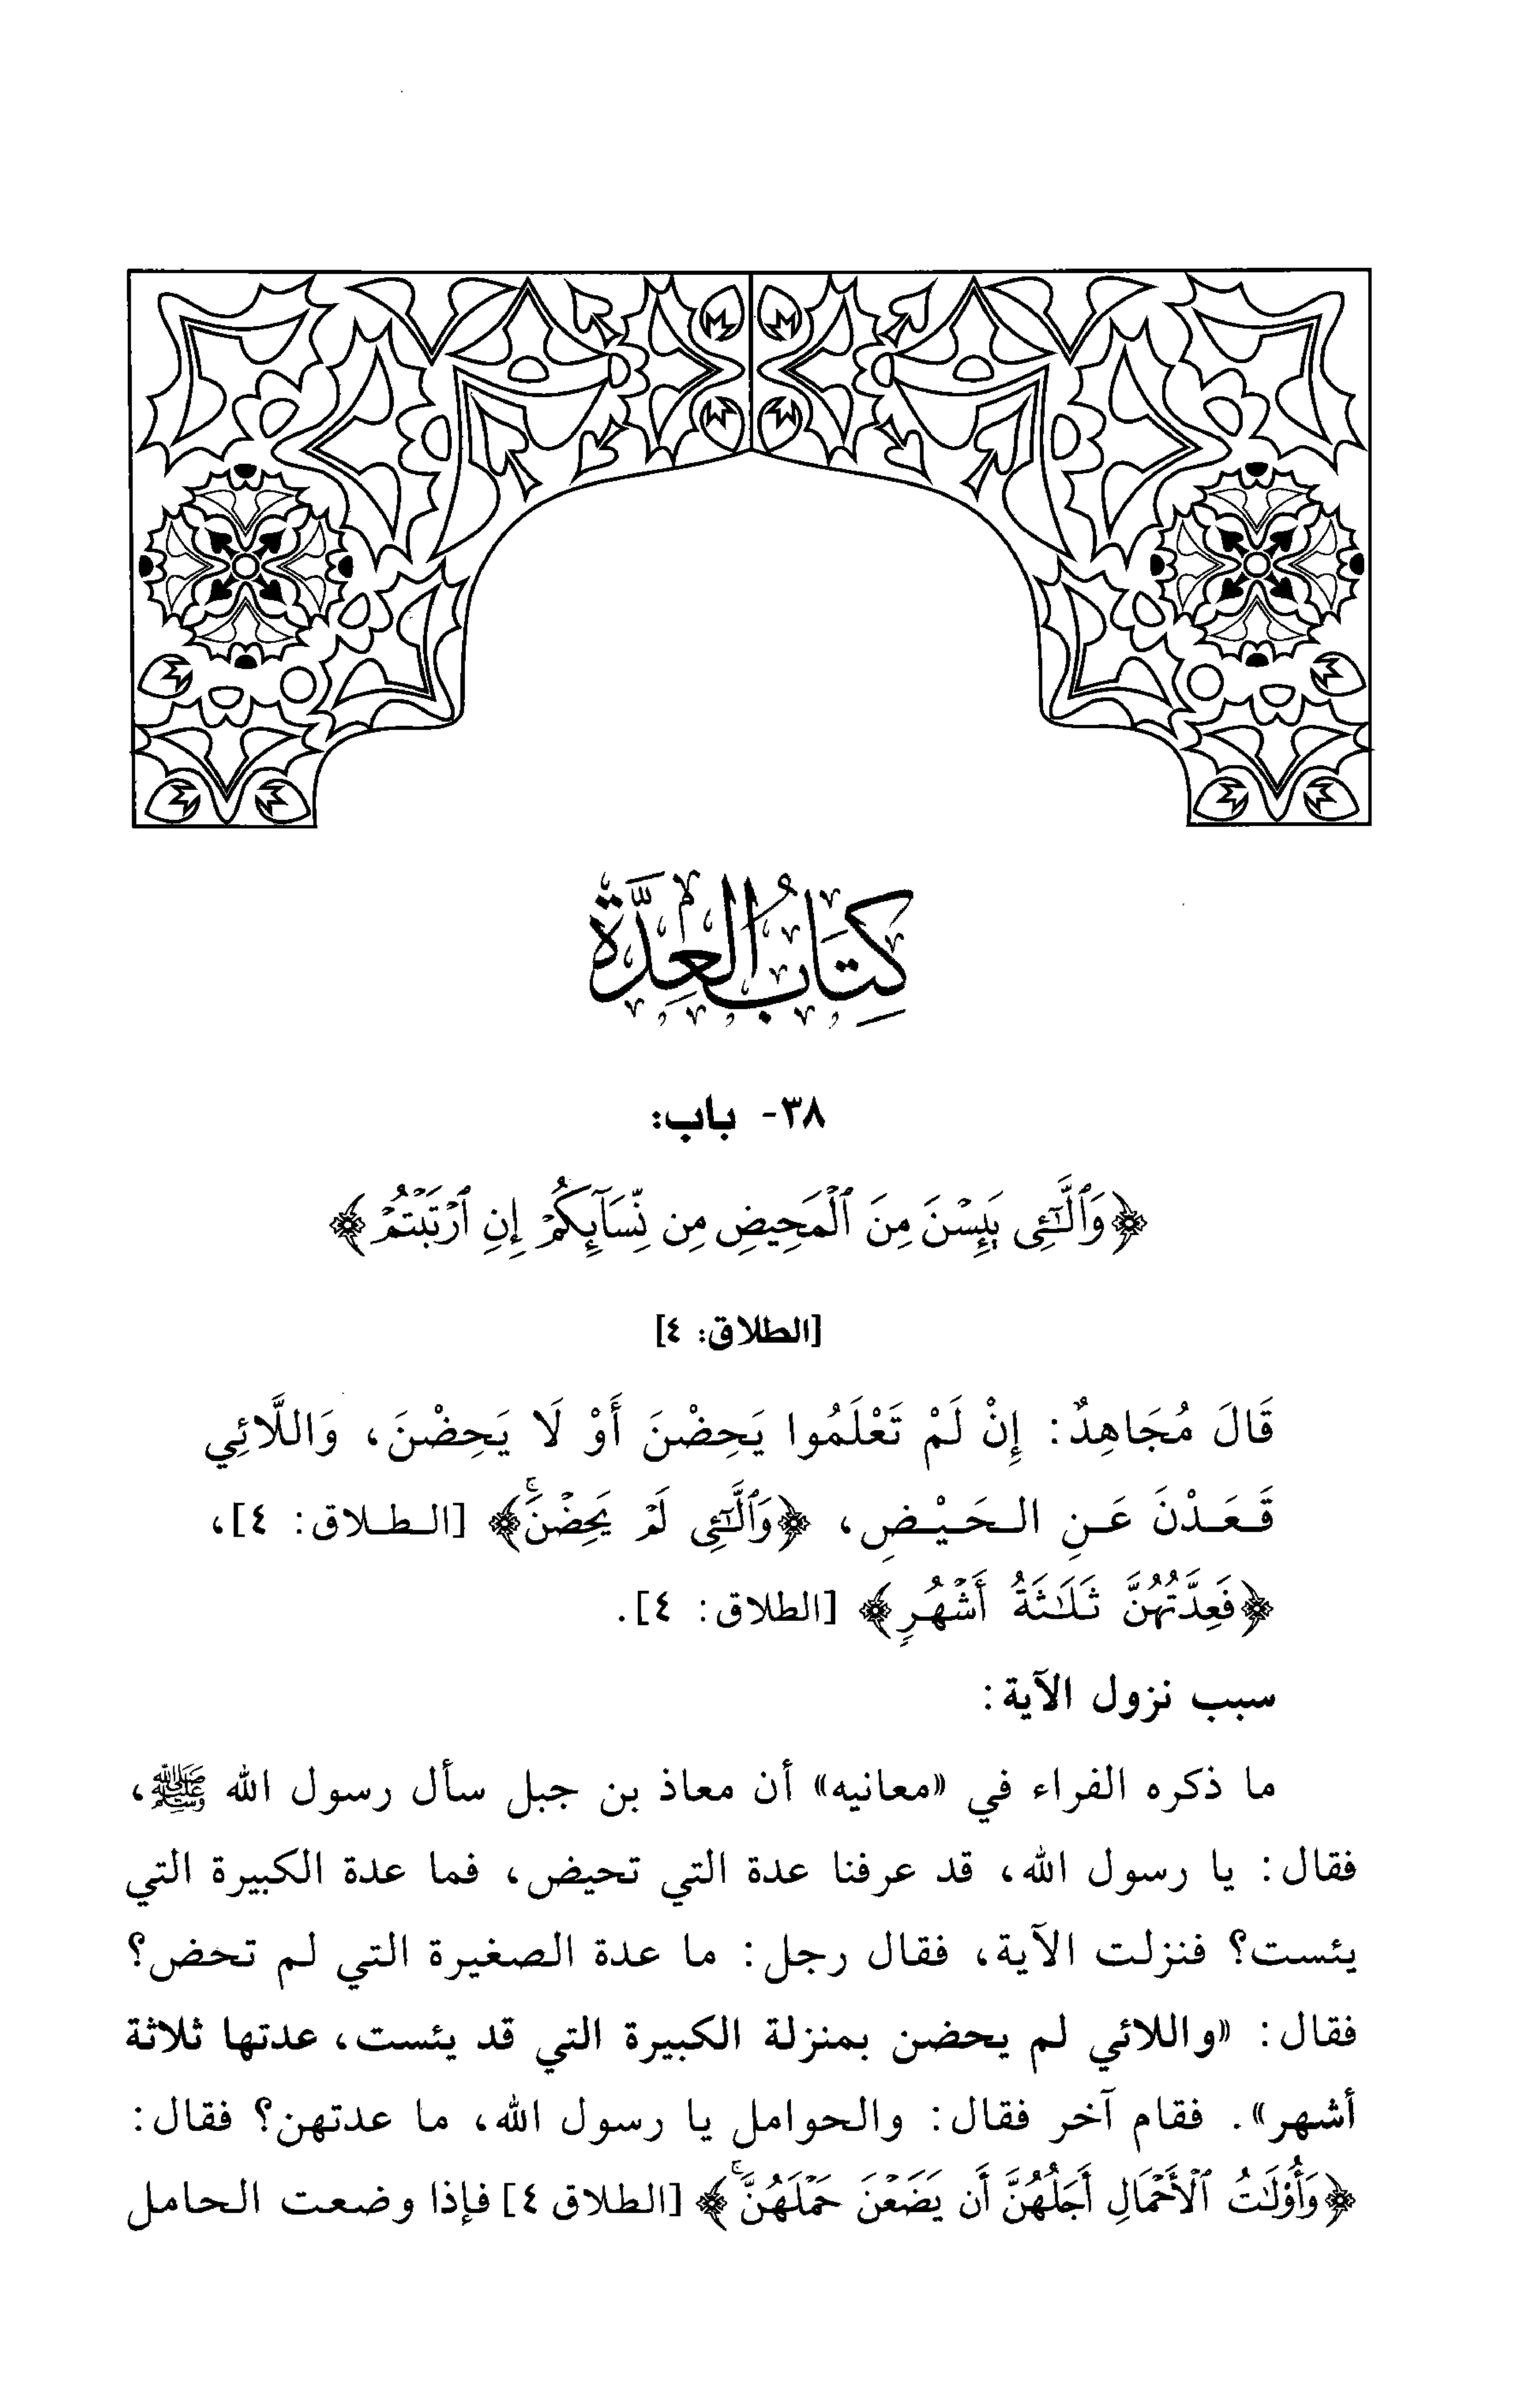 كِتَابُ العِدَّةِ
٣٨- باب:
﴿وَٱلَّـٰٓـِٔى يَئِسْنَ مِنَ ٱلْمَحِيضِ مِن نِّسَآئِكُمْ إِنِ ٱرْتَبْتُمْ﴾
[الطلاق: ٤]
قَالَ مُجَاهِدٌ: إِنْ لَمْ تَعْلَمُوا يَحِضْنَ أَوْ لَا يَحِضْنَ، وَاللَّائِي
قَعَدْنَ عَنِ الحَيْضِ، ﴿وَٱلَّـٰٓـِٔى لَمْ يَحِضْنَ ۚ﴾ [الطلاق: ٤]،
﴿فَعِدَّتُهُنَّ ثَلَـٰثَةُ أَشْهُرٍ﴾ [الطلاق: ٤].
سبب نزول الآية:
ما ذكره الفراء في «معانيه» أن معاذ بن جبل سأل رسول الله ﷺ،
فقال: يا رسول الله، قد عرفنا عدة التي تحيض، فما عدة الكبيرة التي
يئست؟ فنزلت الآية، فقال رجل: ما عدة الصغيرة التي لم تحض؟
فقال: «واللائي لم يحضن بمنزلة الكبيرة التي قد يئست، عدتها ثلاثة
أشهر». فقام آخر فقال: والحوامل يا رسول الله، ما عدتهن؟ فقال:
﴿وَأُو۟لَـٰتُ ٱلْأَحْمَالِ أَجَلُهُنَّ أَن يَضَعْنَ حَمْلَهُنَّ ۚ﴾ [الطلاق ٤] فإذا وضعت الحامل